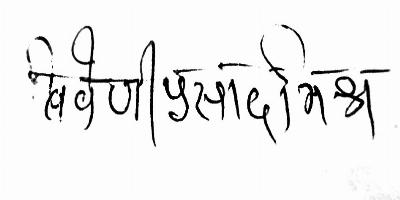 त्रिवेणीप्रसादमिश्र